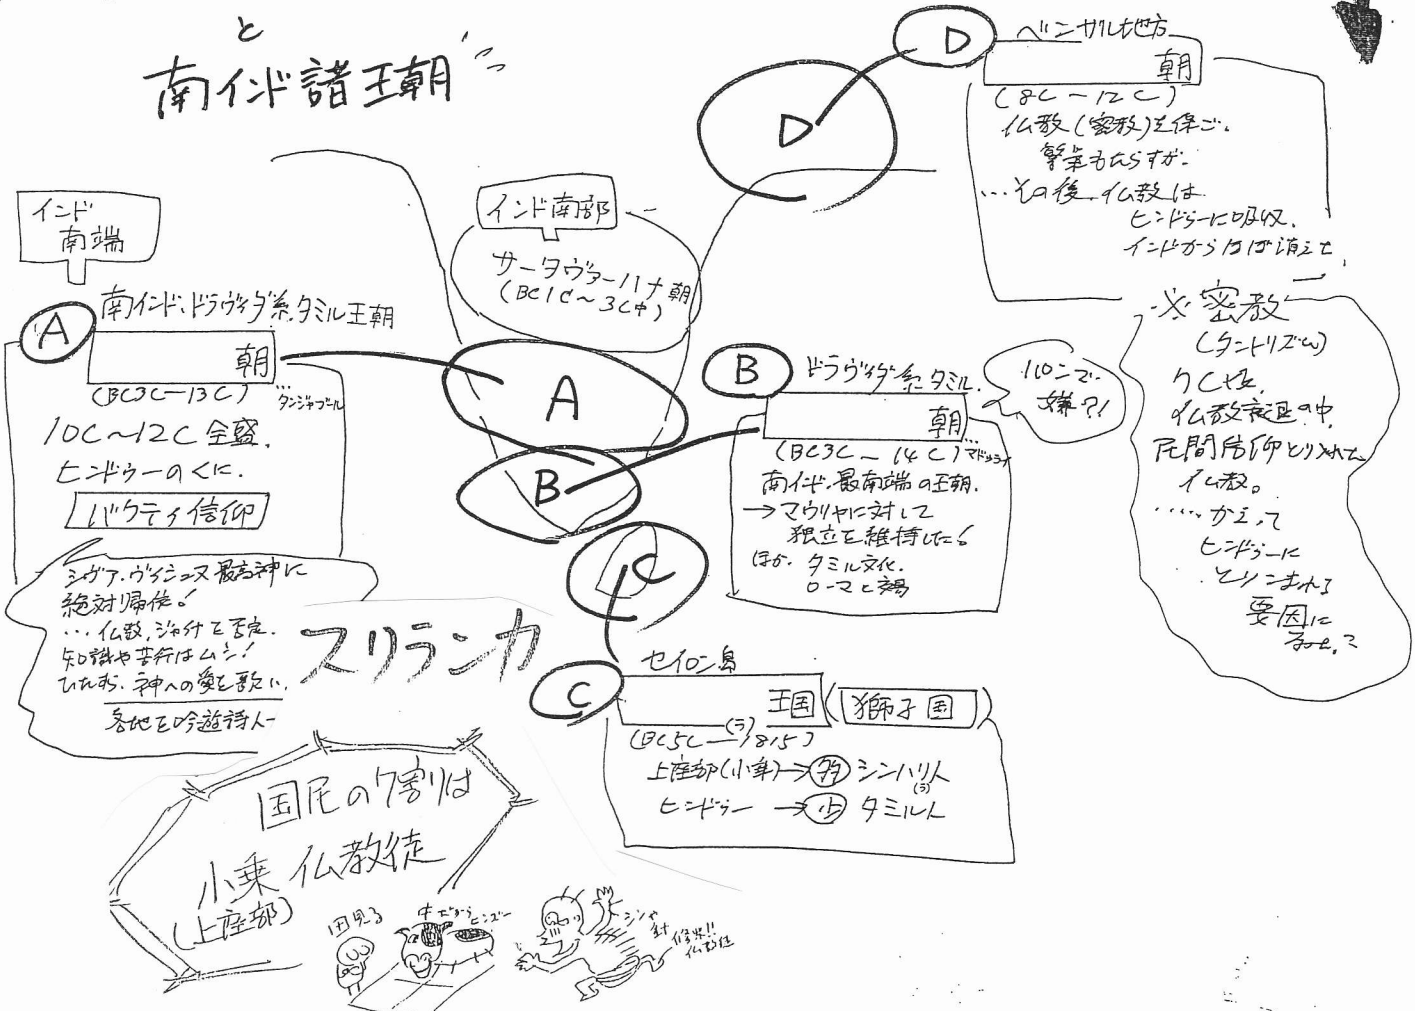 と
南インド諸王朝
インド
南端
A
南インド、ドラヴィダ系、タミル王朝
朝
(BC3C－13C)
タンジャブール
10C～12C全盛、
ヒンドゥーのくに、
バクティ信仰
シヴァ・ヴィシュヌ最高神に
絶対帰依!
…仏教、ジャイナを否定、
知識や苦行はムシ!
ひたすら、神への愛を歌い、
各地を吟遊詩人－
インド南部
サータヴァーハナ朝
(BC1C～3C中)
A
B
C
D
D
ベンガル地方
朝
(8C－12C)
仏教(密教)を保ご、
繁栄もたらすが、
…その後、仏教は
ヒンドゥーに吸収、
インドからほぼ消えた
※密教
(タントリズム)
7C頃、
仏教衰退の中、
民間信仰とり入れた
仏教。
……かえって
ヒンドゥーに
とりこまれる
要因に
なった。?
B
ドラヴィダ系、タミル、
朝
(BC3C～14C)
マドゥライ
南インド、最南端の王朝、
→マウリヤに対して
独立を維持した!
ほか、タミル文化、
ローマと交易
パンで
嫌?!
スリランカ
C
セイロン島
王国(獅子国)
(BC5C－1815)
(ラ)
上座部(小乗)→多 シンハリ人
(ラ)
ヒンドゥー→少 タミル人
国民の7割りは
小乗 仏教徒
(上座部)
田児る
牛だから
ヒンズー
シンヤ
針
修業!!
仏教徒